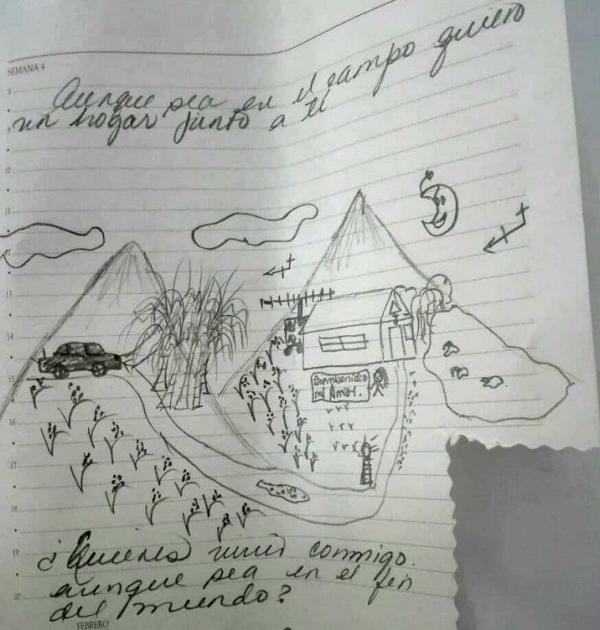 SEMANA 4
Aunque sea en el campo quiero
un hogar junto a ti
Bienbenidos
mi Amor.
¿Quieres vivir conmigo.
aunque sea en el fin
del mundo?
FEBRERO